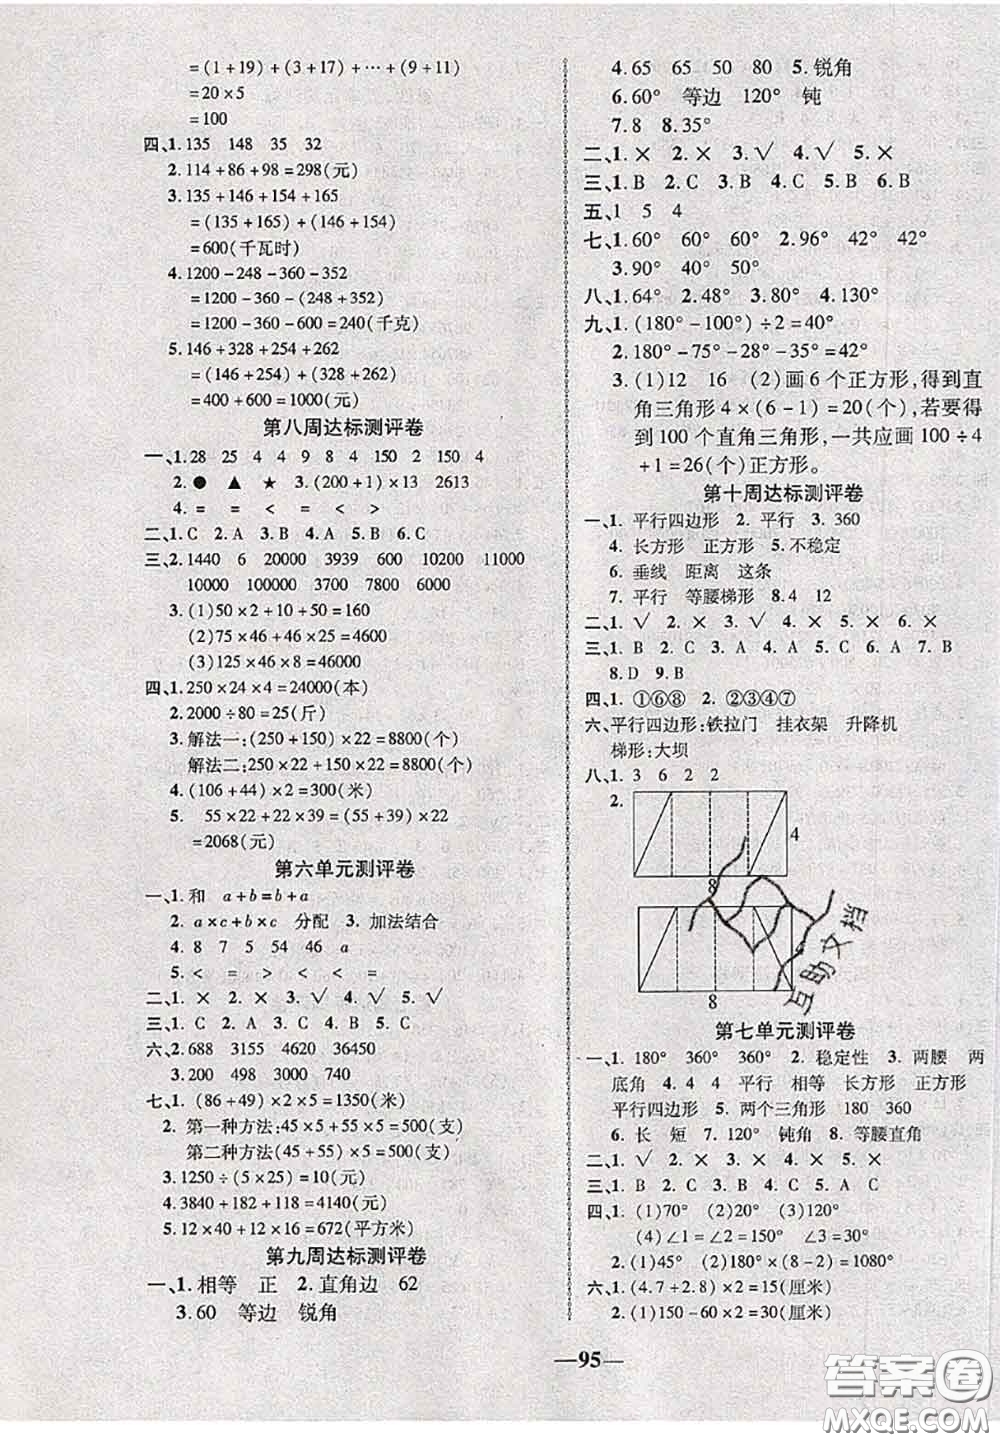 =(1+19)+(3+17)+…+(9+11)
=20×5
=100
四、1.135 148 35 32
2.114+86+98=298(元)
3.135+146+154+165
=(135+165)+(146+154)
=600(千瓦时)
4.1200-248-360-352
=1200-360-(248+352)
=1200-360-600=240(千克)
5.146+328+254+262
=(146+254)+(328+262)
=400+600=1000(元)
第八周达标测评卷
一、1.28 25 4 4 9 8 4 150 2 150 4
2.● ▲ ★ 3.(200+1)×13 2613
4.= = < = < >
二、1.C 2.A 3.B 4.A 5.B 6.B
三、2.1440 6 20000 3939 600 10200 11000
10000 100000 3700 7800 6000
3.(1)50×2+10+50=160
(2)75×46+46×25=4600
(3)125×46×8=46000
四、1.250×24×4=24000(本)
2.2000÷80=25(斤)
3.解法一:(250+150)×22=8800(个)
解法二:250×22+150×22=8800(个)
4.(106+44)×2=300(米)
5. 55×22+22×39=(55+39)×22
=2068(元)
第六单元测评卷
一、1.和 a+b=b+a
2.a×c+b×c 分配 3.加法结合
4.8 7 5 54 46 a
5.< = > < < =
二、1.× 2.× 3.√ 4.√ 5.√
三、1.C 2.A 3.C 4.B 5.C
六、2.688 3155 4620 36450
3.200 498 3000 740
七、1.(86+49)×2×5=1350(米)
2.第一种方法:45×5+55×5=500(支)
第二种方法(45+55)×5=500(支)
3.1250÷(5×25)=10(元)
4.3840+182+118=4140(元)
5.12×40+12×16=672(平方米)
第九周达标测评卷
一、1.相等 正 2.直角边 62
3.60 等边 锐角
4.65 65 50 80 5.锐角
6.60° 等边 120° 钝
7.8 8.35°
二、1.× 2.× 3.√ 4.√ 5.×
三、1.B 2.C 3.B 4.C 5.B 6.B
五、1 5 4
七、1.60° 60° 60° 2.96° 42° 42°
3.90° 40° 50°
八、1.64° 2.48° 3.80° 4.130°
九、1.(180°-100°)÷2=40°
2.180°-75°-28°-35°=42°
3.(1)12 16 (2)画6个正方形,得到直
角三角形4×(6-1)=20(个),若要得
到100个直角三角形,一共应画100÷4
+1=26(个)正方形。
第十周达标测评卷
一、1.平行四边形 2.平行 3.360
4.长方形 正方形 5.不稳定
6.垂线 距离 这条
7.平行 等腰梯形 8.4 12
二、1.√ 2.× 3.√ 4.× 5.× 6.×
三、1.B 2.C 3.C 4.A 5.A 6.C 7.B
8.D 9.B
四、1.①⑥⑧ 2.②③④⑦
六、平行四边形:铁拉门 挂衣架 升降机
梯形:大坝
八、1.3 6 2 2
2.
4
8
8
互助文档
第七单元测评卷
一、1.180° 360° 360° 2.稳定性 3.两腰 两
底角 4.4 4 平行 相等 长方形 正方形
平行四边形 5.两个三角形 180 360
6.长 短 7.120° 钝角 8.等腰直角
二、1.√ 2.× 3.× 4.× 5.×
三、1.B 2.C 3.B 4.C 5.A
四、1.(1)70° (2)20° (3)120°
(4)∠1=∠2=150°
2.(1)45° (2)180°×(8-2)=1080°
六、1.(4.7+2.8)×2=15(厘米)
2.(1)150-60×2=30(厘米)
—95—
答案卷
MXQE.COM